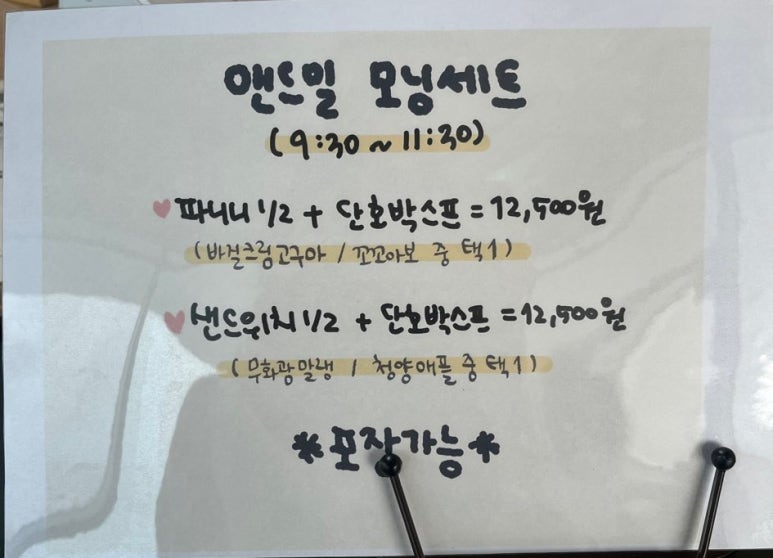 앤드밀 모닝세트
(9:30 ~ 11:30)
파니니 1/2 + 단호박스프 = 12,500원
(바질크림고구마 / 꼬꼬아보 중 택1)
샌드위치 1/2 + 단호박스프 = 12,500원
(무화광말랭 / 청양애플 중 택1)
*포장가능*